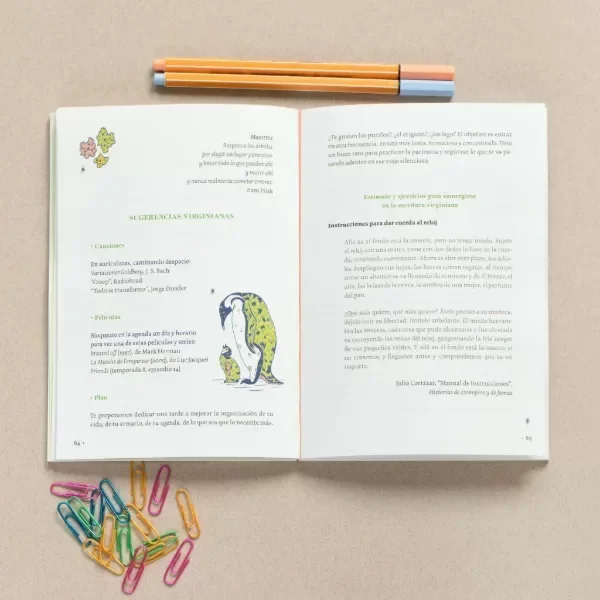 Maestros
Respeto a los árboles
por elegir un lugar y arraizar
y hacer todo lo que pueden ahí
y morir ahí
y nunca realmente cometer errores.
SUGERENCIAS VIRGINIANAS
• Canciones
En auriculares, caminando despacio:
Variaciones Goldberg, J. S. Bach
"Creep", Radiohead
"Todo se transforma", Jorge Drexler
• Películas
Bloqueate en la agenda un día y horario
para ver una de estas películas y series:
Brassed off (1997), de Mark Herman
La Marche de l'empereur (2005), de Luc Jacquet
Friends (temporada 8, episodio 14)
• Plan
Te proponemos dedicar una tarde a mejorar la organización de tu
vida; de tu armario, de tu agenda, de lo que sea que lo necesite más.
64 •
¿Te gustan los puzzles?, ¿el origami?, ¿los legos? El objetivo es entrar
en otra frecuencia, en una más lenta, minuciosa y concentrada. Date
un buen rato para practicar la paciencia y registrar lo que te va pa-
sando adentro en ese viaje silencioso.
Estímulo y ejercicios para sumergirse
en la escritura virginiana
Instrucciones para dar cuerda al reloj
Allá en el fondo está la muerte, pero no tenga miedo. Sujete
el reloj con una mano, tome con dos dedos la llave de la cuer-
da, remóntela suavemente. Ahora se abre otro plazo, los árbo-
les despliegan sus hojas, las barcas corren regatas, el tiempo
como un abanico se va llenando de sí mismo y de él brotan el
aire, las brisas de la tierra, la sombra de una mujer, el perfume
del pan.
¿Qué más quiere, qué más quiere? Átelo pronto a su muñeca,
déjelo latir en libertad, imítelo anhelante. El miedo herrum-
bra las áncoras, cada cosa que pudo alcanzarse y fue olvidada
va corroyendo las venas del reloj, gangrenando la fría sangre
de sus pequeños rubíes. Y allá en el fondo está la muerte si
no corremos y llegamos antes y comprendemos que ya no
importa.
Julio Cortázar, "Manual de Instrucciones".
Historias de cronopios y de famas
• 65